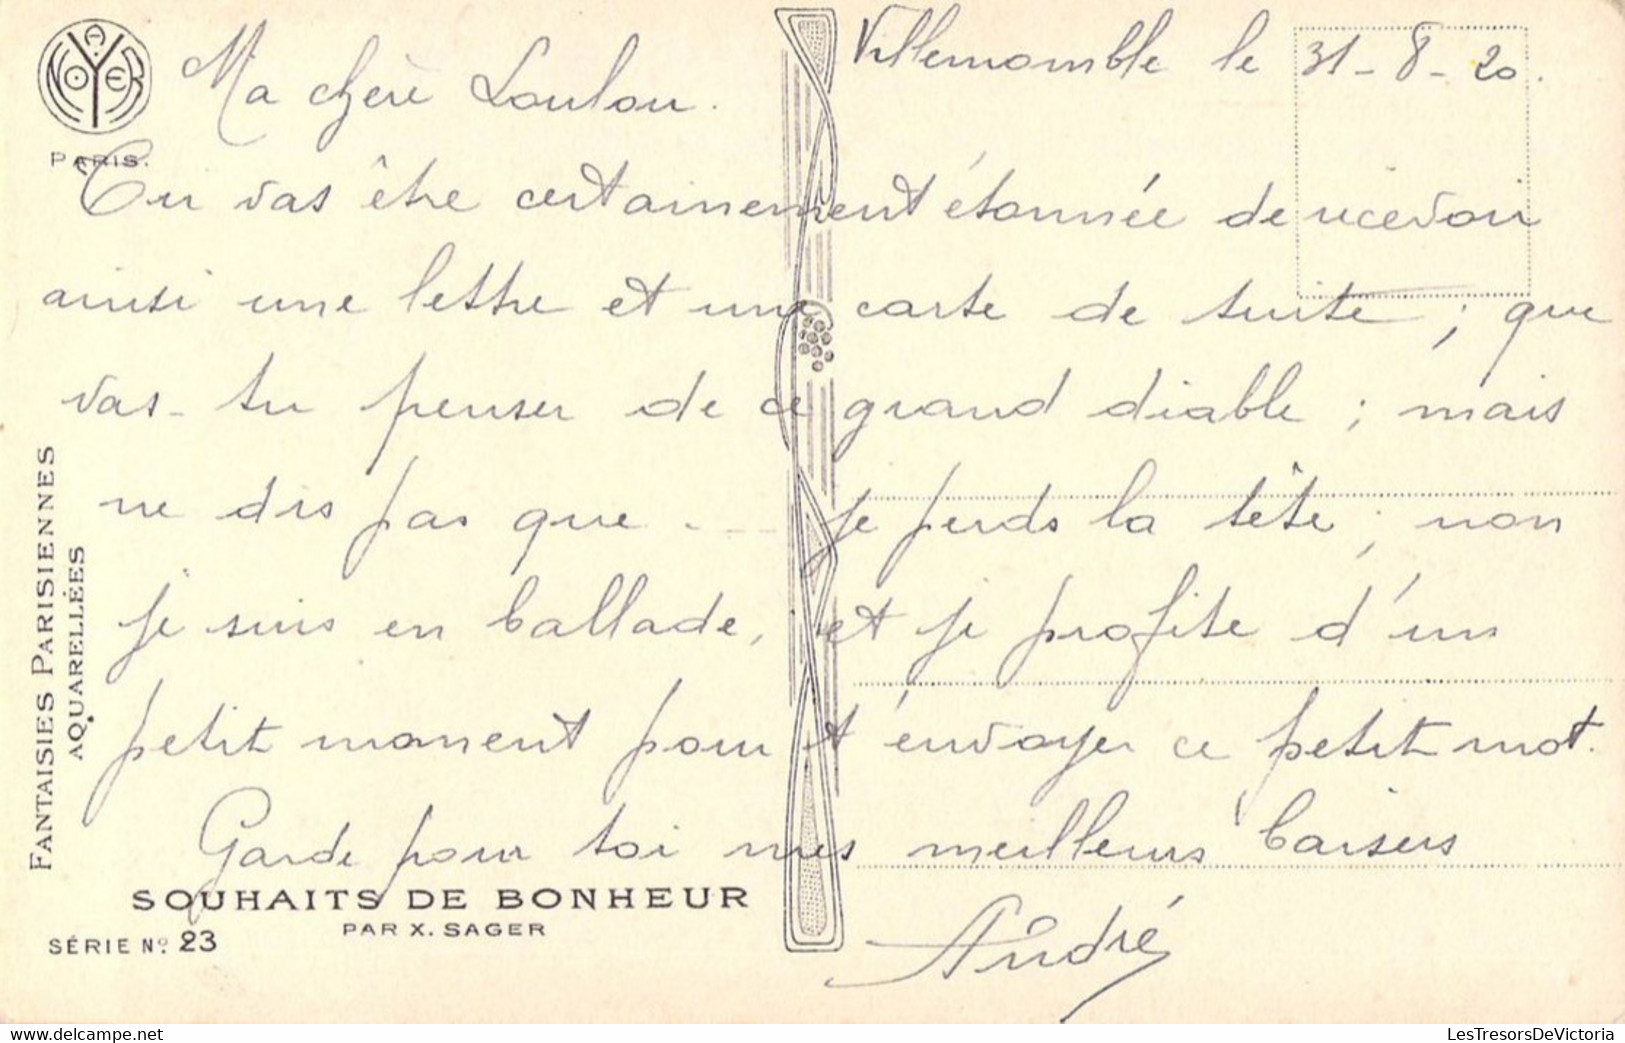 Villemomble le 31-8-20.
Ma chère Loulou.
Tu vas être certainement étonnée de recevoir
ainsi une lettre et une carte de suite ; que
vas-tu penser de ce grand diable ; mais
ne dis pas que ... je perds la tête ; non
je suis en ballade, et je profite d'un
petit moment pour t'envoyer ce petit mot.
Garde pour toi mes meilleurs baisers
André
A. NOYER
PARIS.
FANTAISIES PARISIENNES
AQUARELLÉES
SOUHAITS DE BONHEUR
PAR X. SAGER
SÉRIE No. 23
delcampe.net
LesTresorsDeVictoria